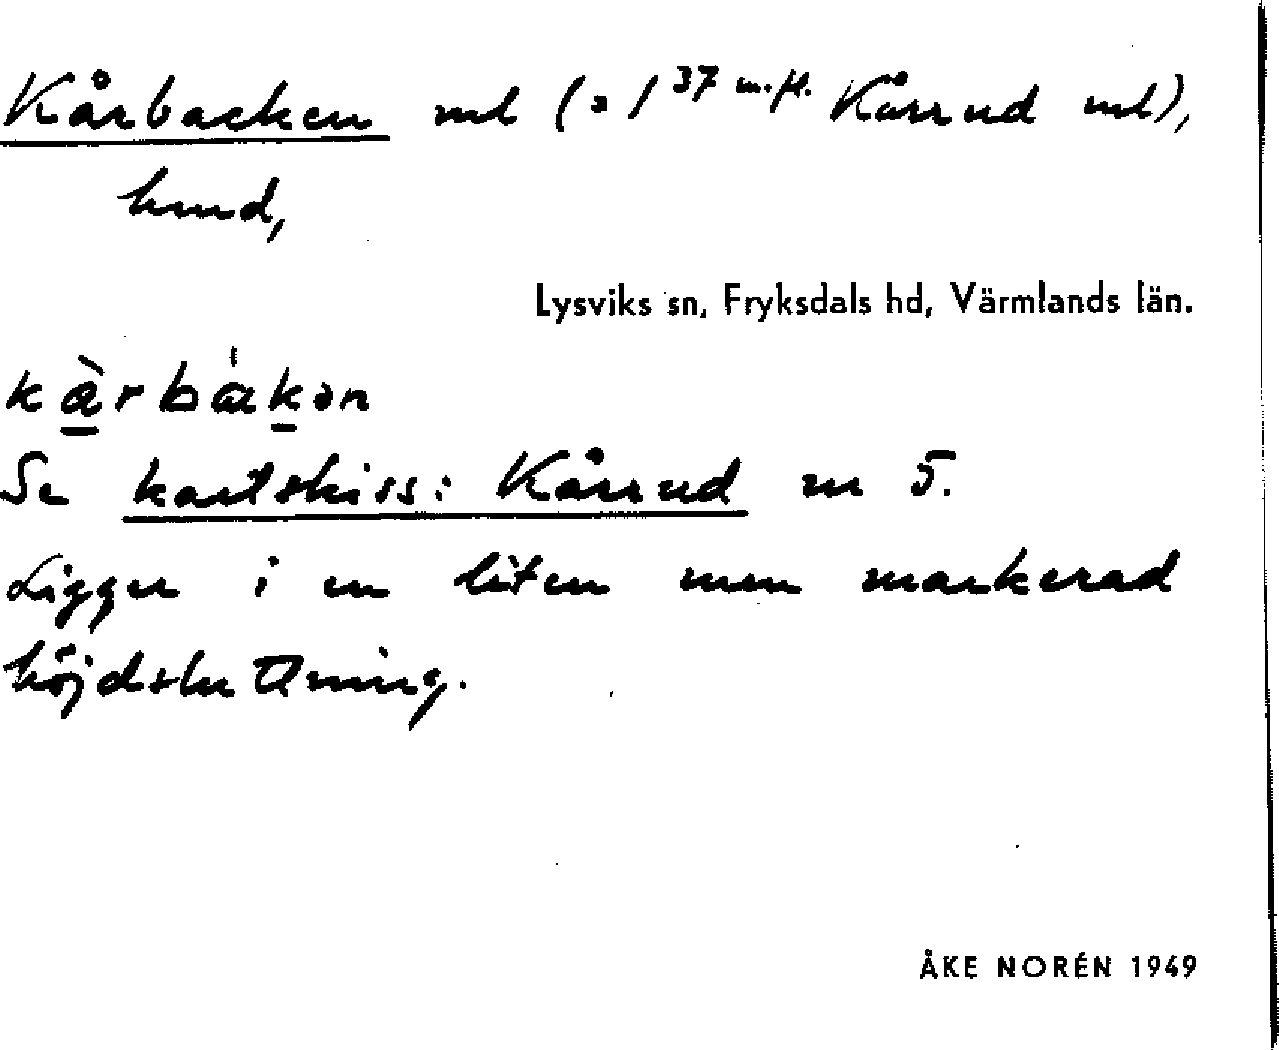 Kårbacken ml (= 1³⁷ m.fl. Kårrud ml),
hmd,
Lysviks sn, Fryksdals hd, Värmlands län.
kårbakən
Se kartskiss: Kårrud nr 5.
Ligger i en liten men markerad
höjdsluttning.
ÅKE NORÉN 1949